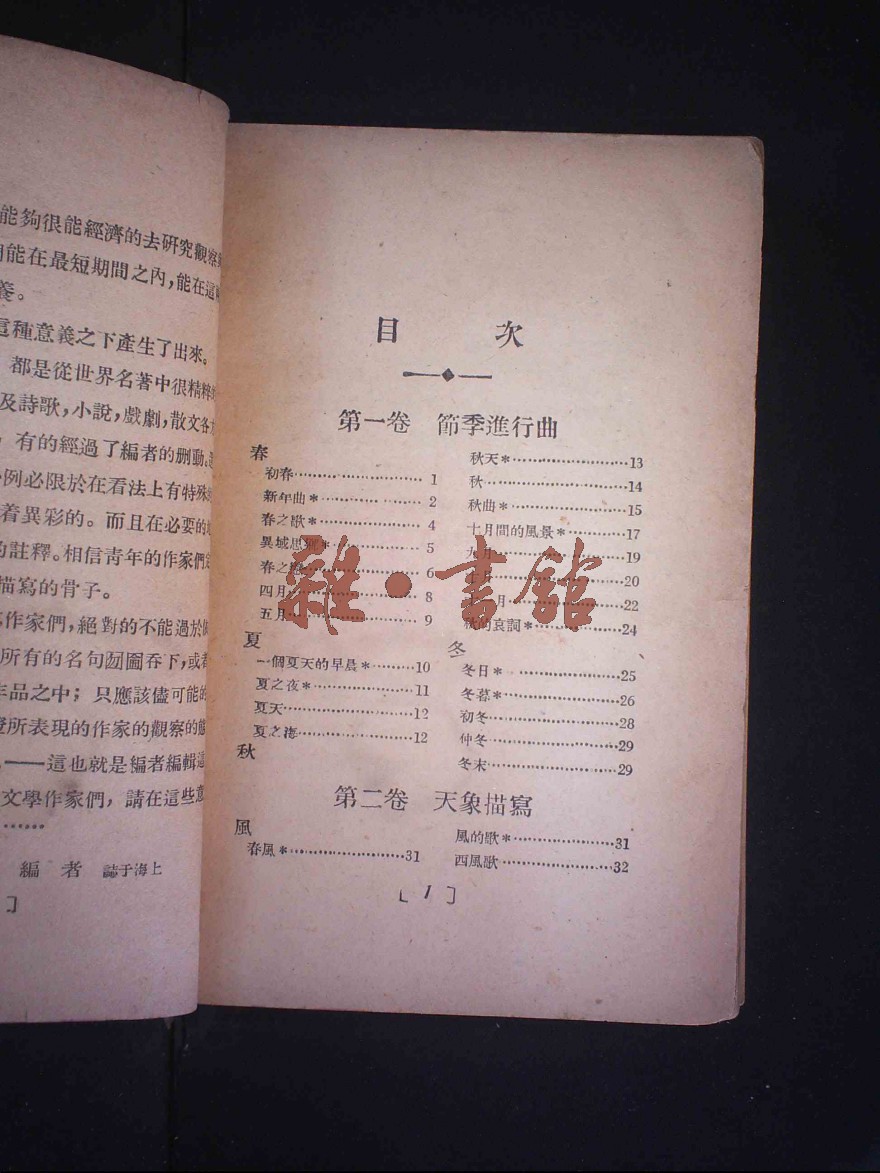 能夠很能經濟的去研究觀察
能在最短期間之內,能在這
養。
這種意義之下產生了出來。
都是從世界名著中很精粹
及詩歌,小說,戲劇,散文各
有的經過了編者的刪動。
例必限於在看法上有特殊
着異彩的。而且在必要的
的註釋。相信青年的作家們
描寫的骨子。
作家們,絕對的不能過於
所有的名句囫圇吞下,或者
作品之中;只應該儘可能的
所表現的作家的觀察的態
——這也就是編者編輯這
文學作家們,請在這些意
……
編者 誌于海上
]
目 次
第一卷 節季進行曲
春
初春…………………… 1
新年曲*……………… 2
春之歌*……………… 4
異域思*……………… 5
春之…………………… 6
四月…………………… 8
五月…………………… 9
夏
一個夏天的早晨*………10
夏之夜*…………………11
夏天………………………12
夏之海……………………12
秋
秋天*……………………13
秋…………………………14
秋曲*……………………15
十月間的風景*…………17
九月………………………19
十月………………………20
月…………………………22
秋的哀詞*………………24
冬
冬日*……………………25
冬暮*……………………26
初冬………………………28
仲冬………………………29
冬末………………………29
第二卷 天象描寫
風
春風*……………………31
風的歌*…………………31
西風歌……………………32
[ 1 ]
雜·書館